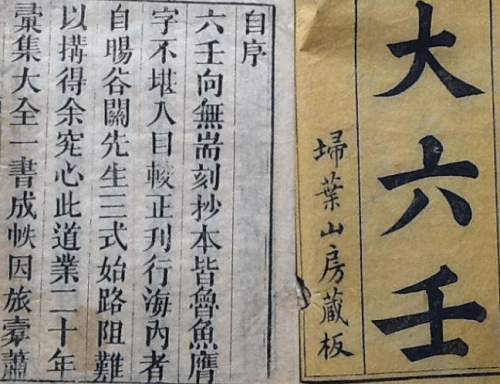 大六壬
埽葉山房藏板
自序
六壬向無耑刻抄本皆魯魚鴈
字不堪入目較正刊行海內者
自暘谷闗先生三式始路阻難
以搆得余究心此道業二十年
彙集大全一書成帙因旅橐蕭